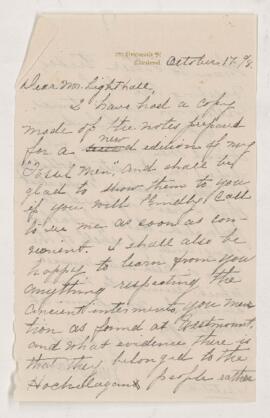 October 17 '98.
Dear Mr. Lighthall,
I have had a copy
made of the notes prepared
new
for a edition of my
"Fossil Men", and shall be
glad to show them to you
if you will kindly call
to see me as soon as con-
venient. I shall also be
happy to learn from you
anything respecting the
ancient interments you men-
tion as found at Westmount,
and what evidence there is
that they belonged to the
Hochelagans people rather